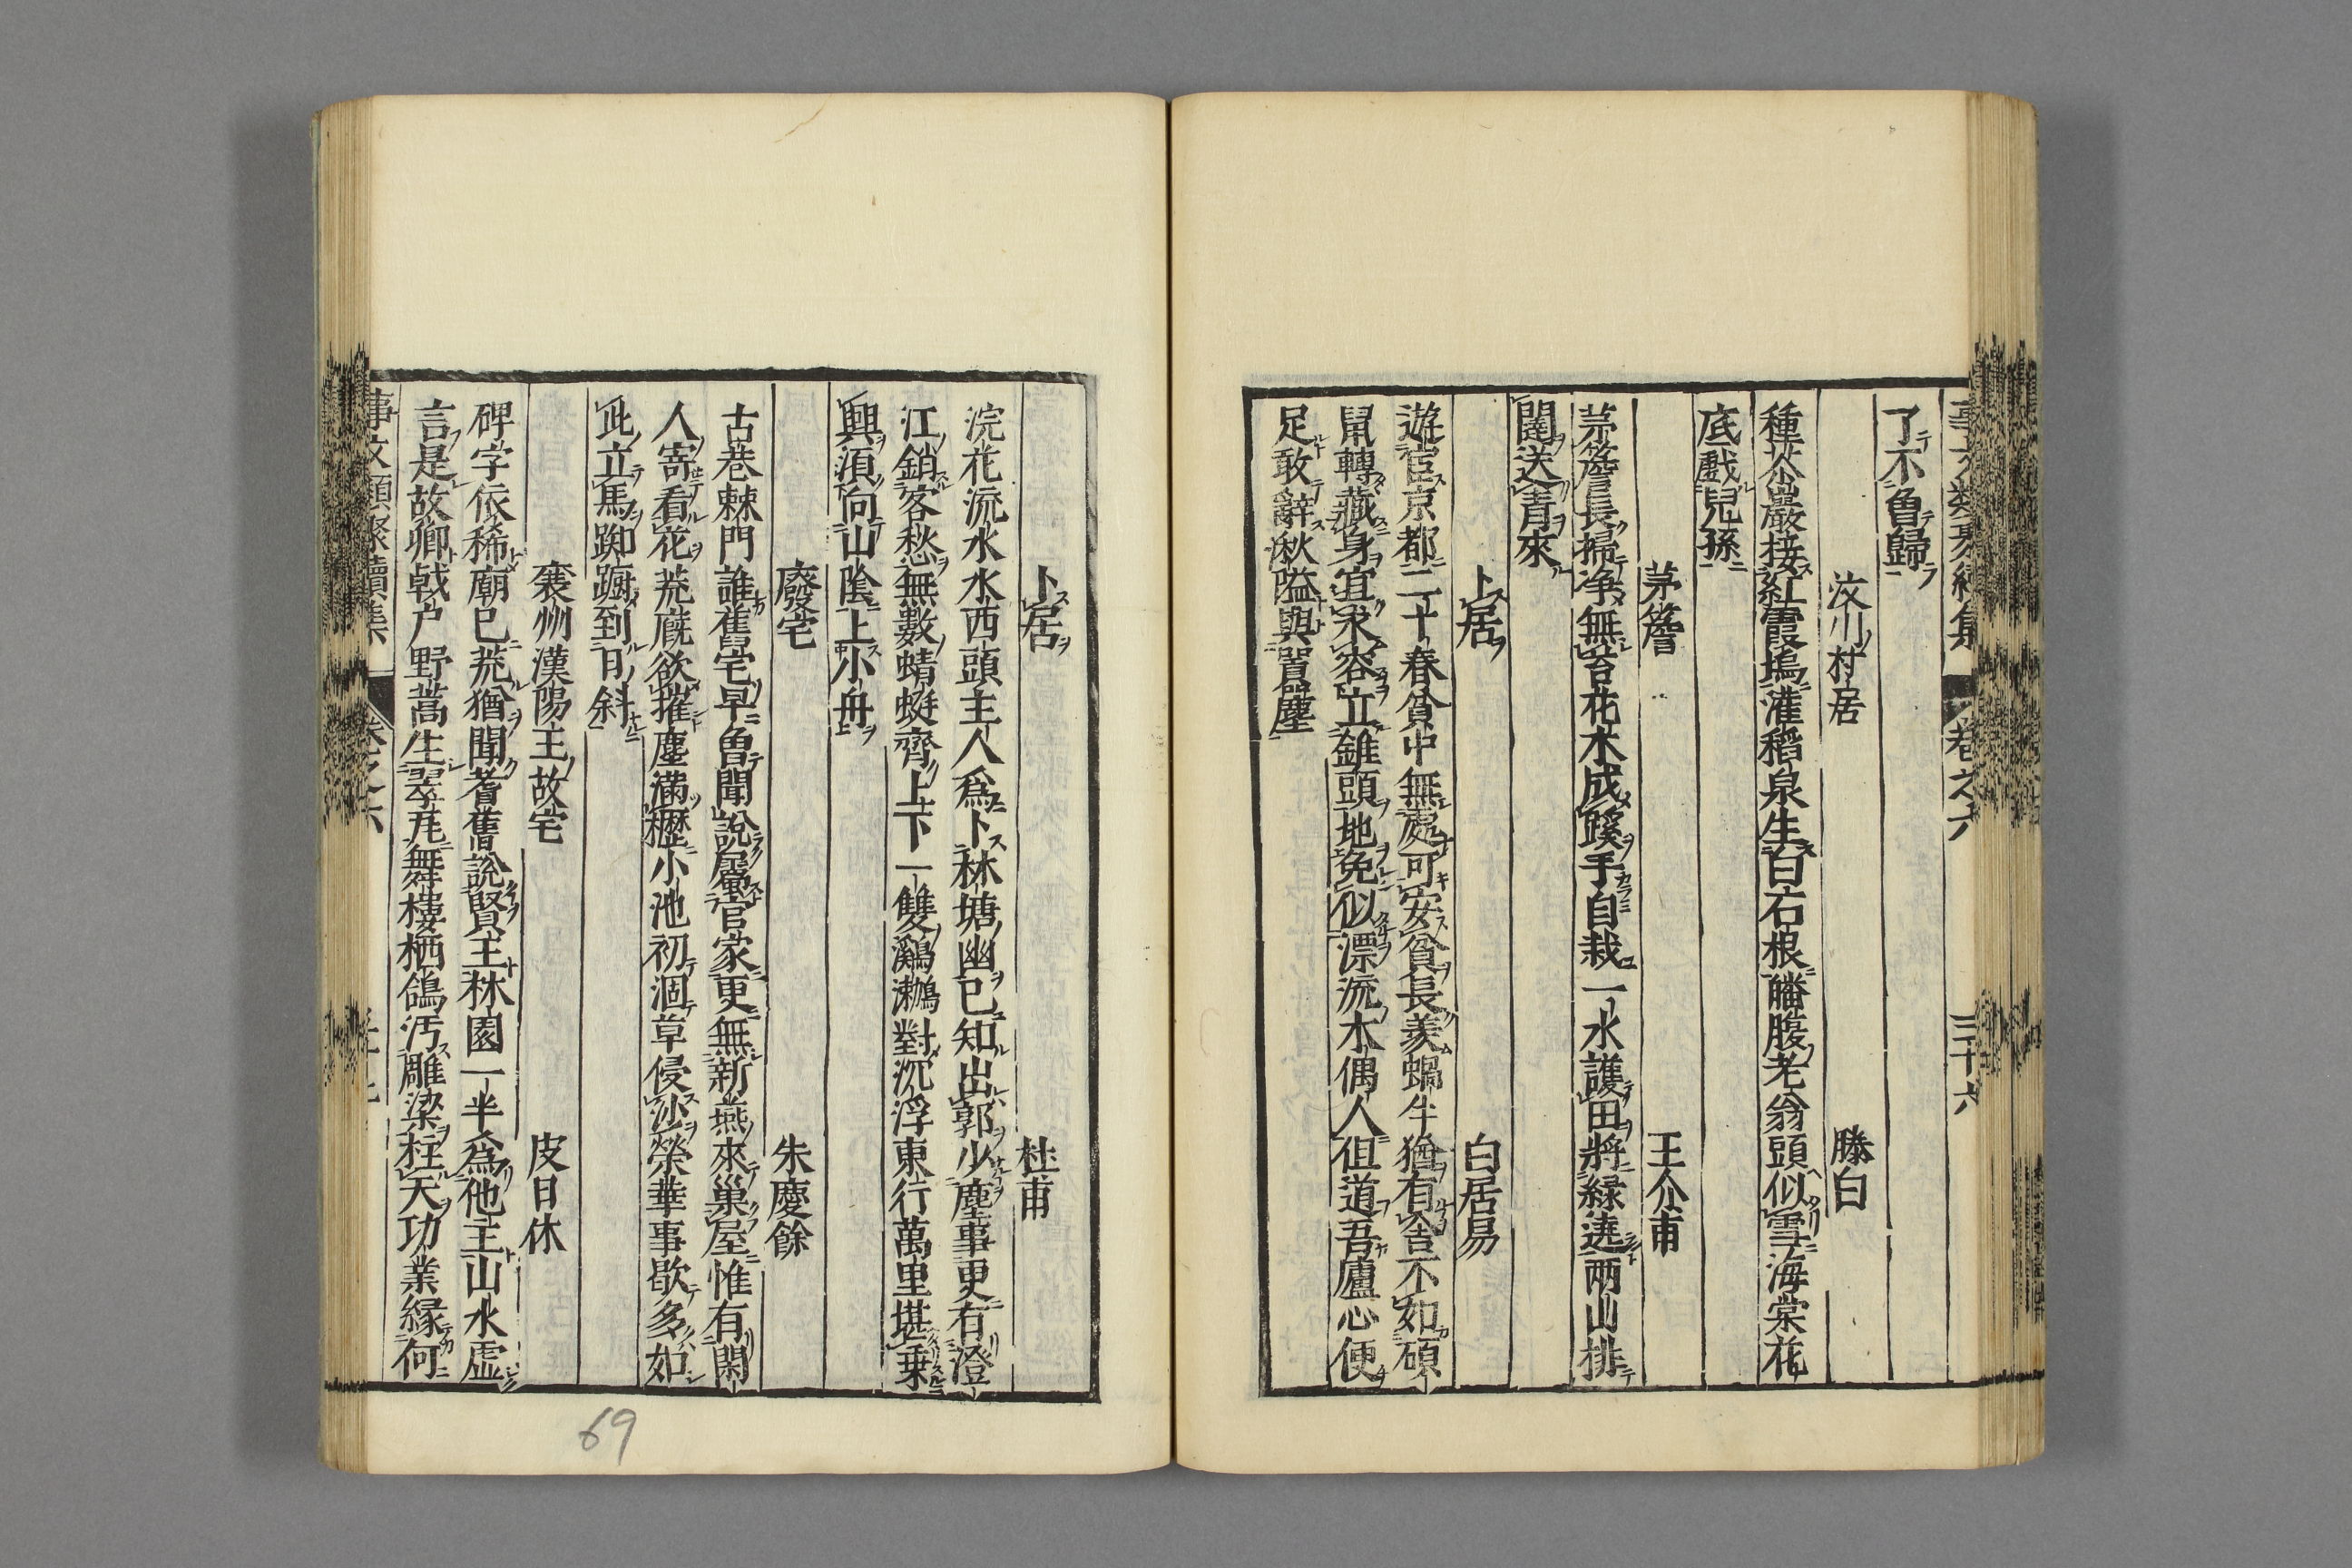 事文類聚續集 卷之六 三十六
了不曾歸
汶川村居 滕白
種茶巖接紅霞塢灌稻泉生白石根皤腹老翁頭似雪海棠花
底戲兒孫
茅簷 王介甫
茅簷長掃淨無苔花木成蹊手自栽一水護田將綠遶兩山排
闥送青來
卜居 白居易
遊宦京都二十春貧中無處可安貧長羨蝸牛猶有舍不如碩
鼠轉藏身宜求容立錐頭地免似漂流木偶人但道吾廬心便
足敢辭湫隘與囂塵
卜居 杜甫
浣花流水水西頭主人爲卜林塘幽已知出郭少塵事更有澄
江銷客愁無數蜻蜓齊上下一雙鸂鶒對沉浮東行萬里堪乗
興須向山陰上小舟
廢宅 朱慶餘
古巷棘門誰舊宅早曾聞說屬官家更無新燕來巢屋惟有閑
人寄看花荒廐欲摧塵滿櫪小池初涸草侵沙榮華事歇多如
此立馬踟躕到日斜
襄州漢陽王故宅 皮日休
碑字依稀廟已荒猶聞耆舊說賢王林園一半爲他主山水虛
言是故鄉戟戸野蒿生翠瓦舞樓栖鴿汚雕梁柱天功業緣何
事文類聚續集 卷之六 三十七
69